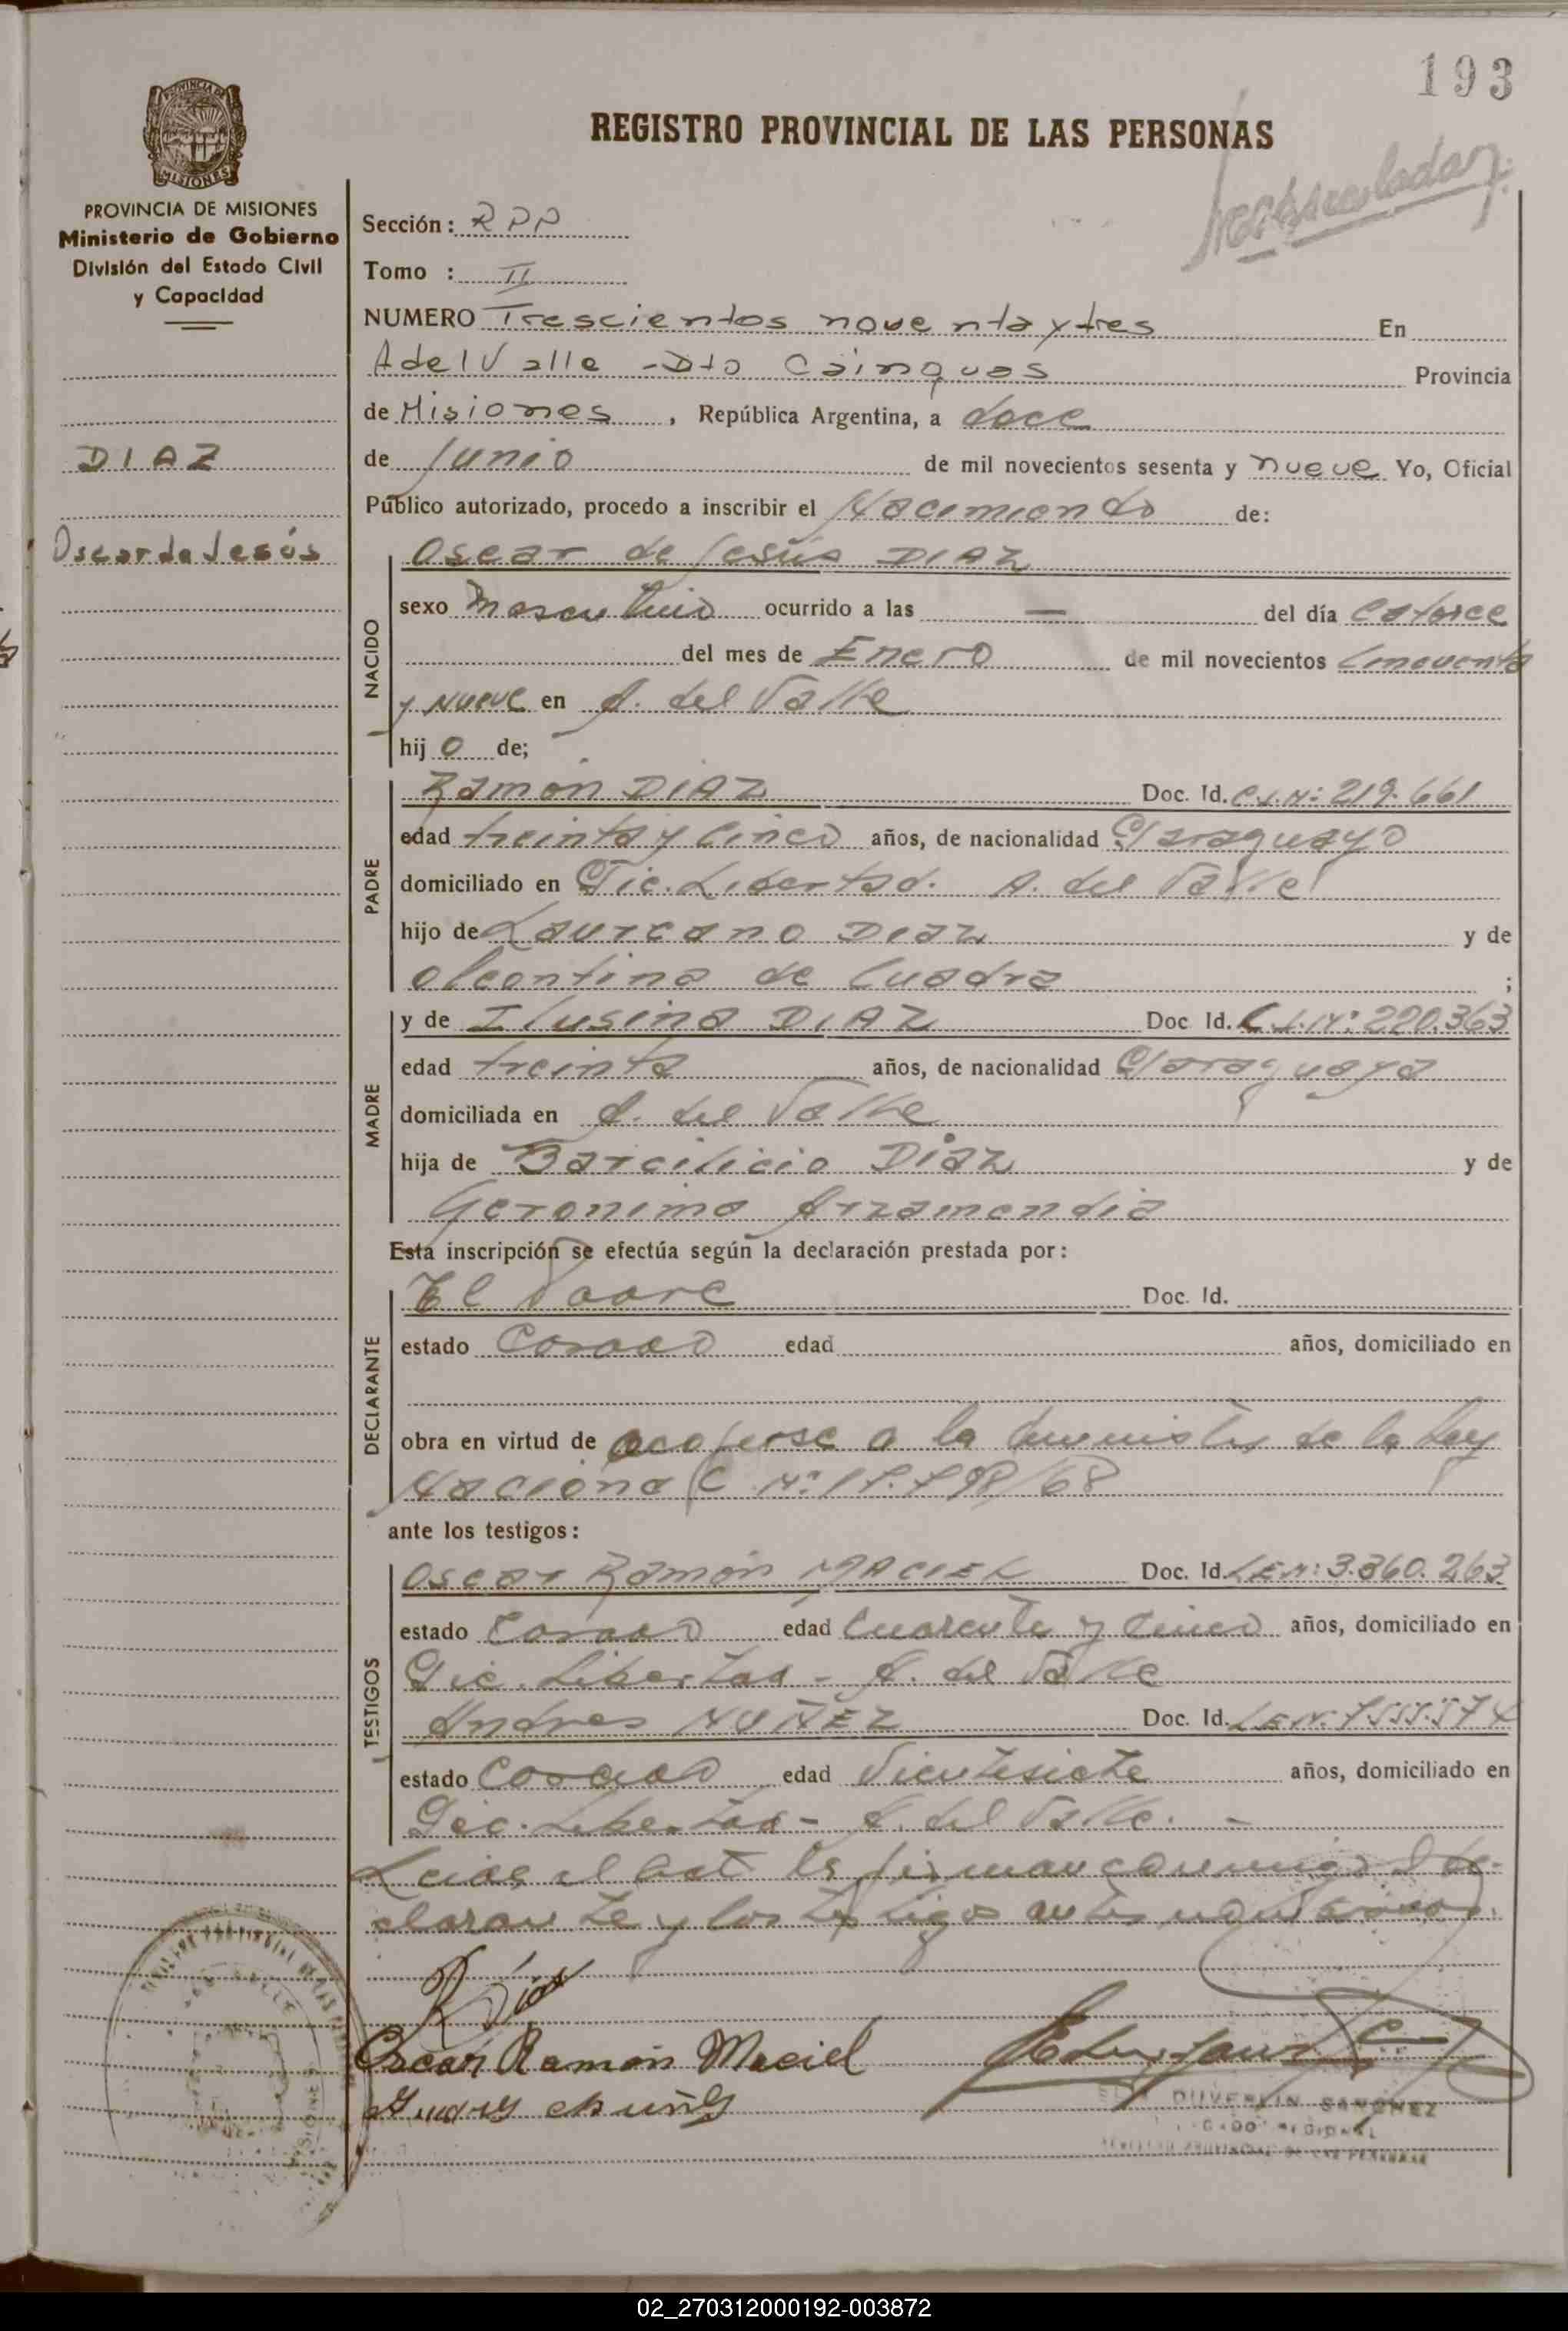 193
REGISTRO PROVINCIAL DE LAS PERSONAS
PROVINCIA DE MISIONES
Ministerio de Gobierno
División del Estado Civil
y Capacidad
DIAZ
Oscar de Jesús
Sección: RPP
Tomo : II
NUMERO Trescientos noventa y tres En
A del Valle - Dto Cainguas Provincia
de Misiones, República Argentina, a doce
de Junio de mil novecientos sesenta y nueve Yo, Oficial
Público autorizado, procedo a inscribir el Nacimiento de:
NACIDO
Oscar de Jesús DIAZ
sexo Masculino ocurrido a las — del día Catorce
del mes de Enero de mil novecientos Cincuenta
y Nueve en A. del Valle
hij o de;
PADRE
Ramón DIAZ Doc. Id. C.I.N: 219.661
edad treinta y Cinco años, de nacionalidad Paraguayo
domiciliado en Pic. Libertad. A. del Valle
hijo de Laureano Diaz y de
Oleontina de Cuadra ;
MADRE
y de Ilusina DIAZ Doc Id. C.I.N: 220.363
edad treinta años, de nacionalidad Paraguaya
domiciliada en A. del Valle
hija de Barcilicio Diaz y de
Geronima Arzamendia
Esta inscripción se efectúa según la declaración prestada por:
DECLARANTE
El Padre Doc. Id.
estado Casado edad años, domiciliado en
obra en virtud de acojerse a la de la Ley
Nacional N: /68
ante los testigos:
TESTIGOS
Oscar Ramón MACIEL Doc. Id. L.E.N: 3.360.263
estado Casado edad Cuarenta y Cinco años, domiciliado en
Pic. Libertad - A. del Valle
Andres NUÑEZ Doc. Id. L.E.N: 7.555.574
estado Casado edad Vientesiete años, domiciliado en
Pic. Libertad - A. del Valle. -
Leida el acta la firman conmigo el de-
clarante y los testigos antes nombrados.
R Díaz
Oscar Ramón Maciel
Andres Nuñez
DUVERLIN SANCHEZ
REGIONAL
REGISTRO PROVINCIAL DE LAS PERSONAS
02_270312000192-003872